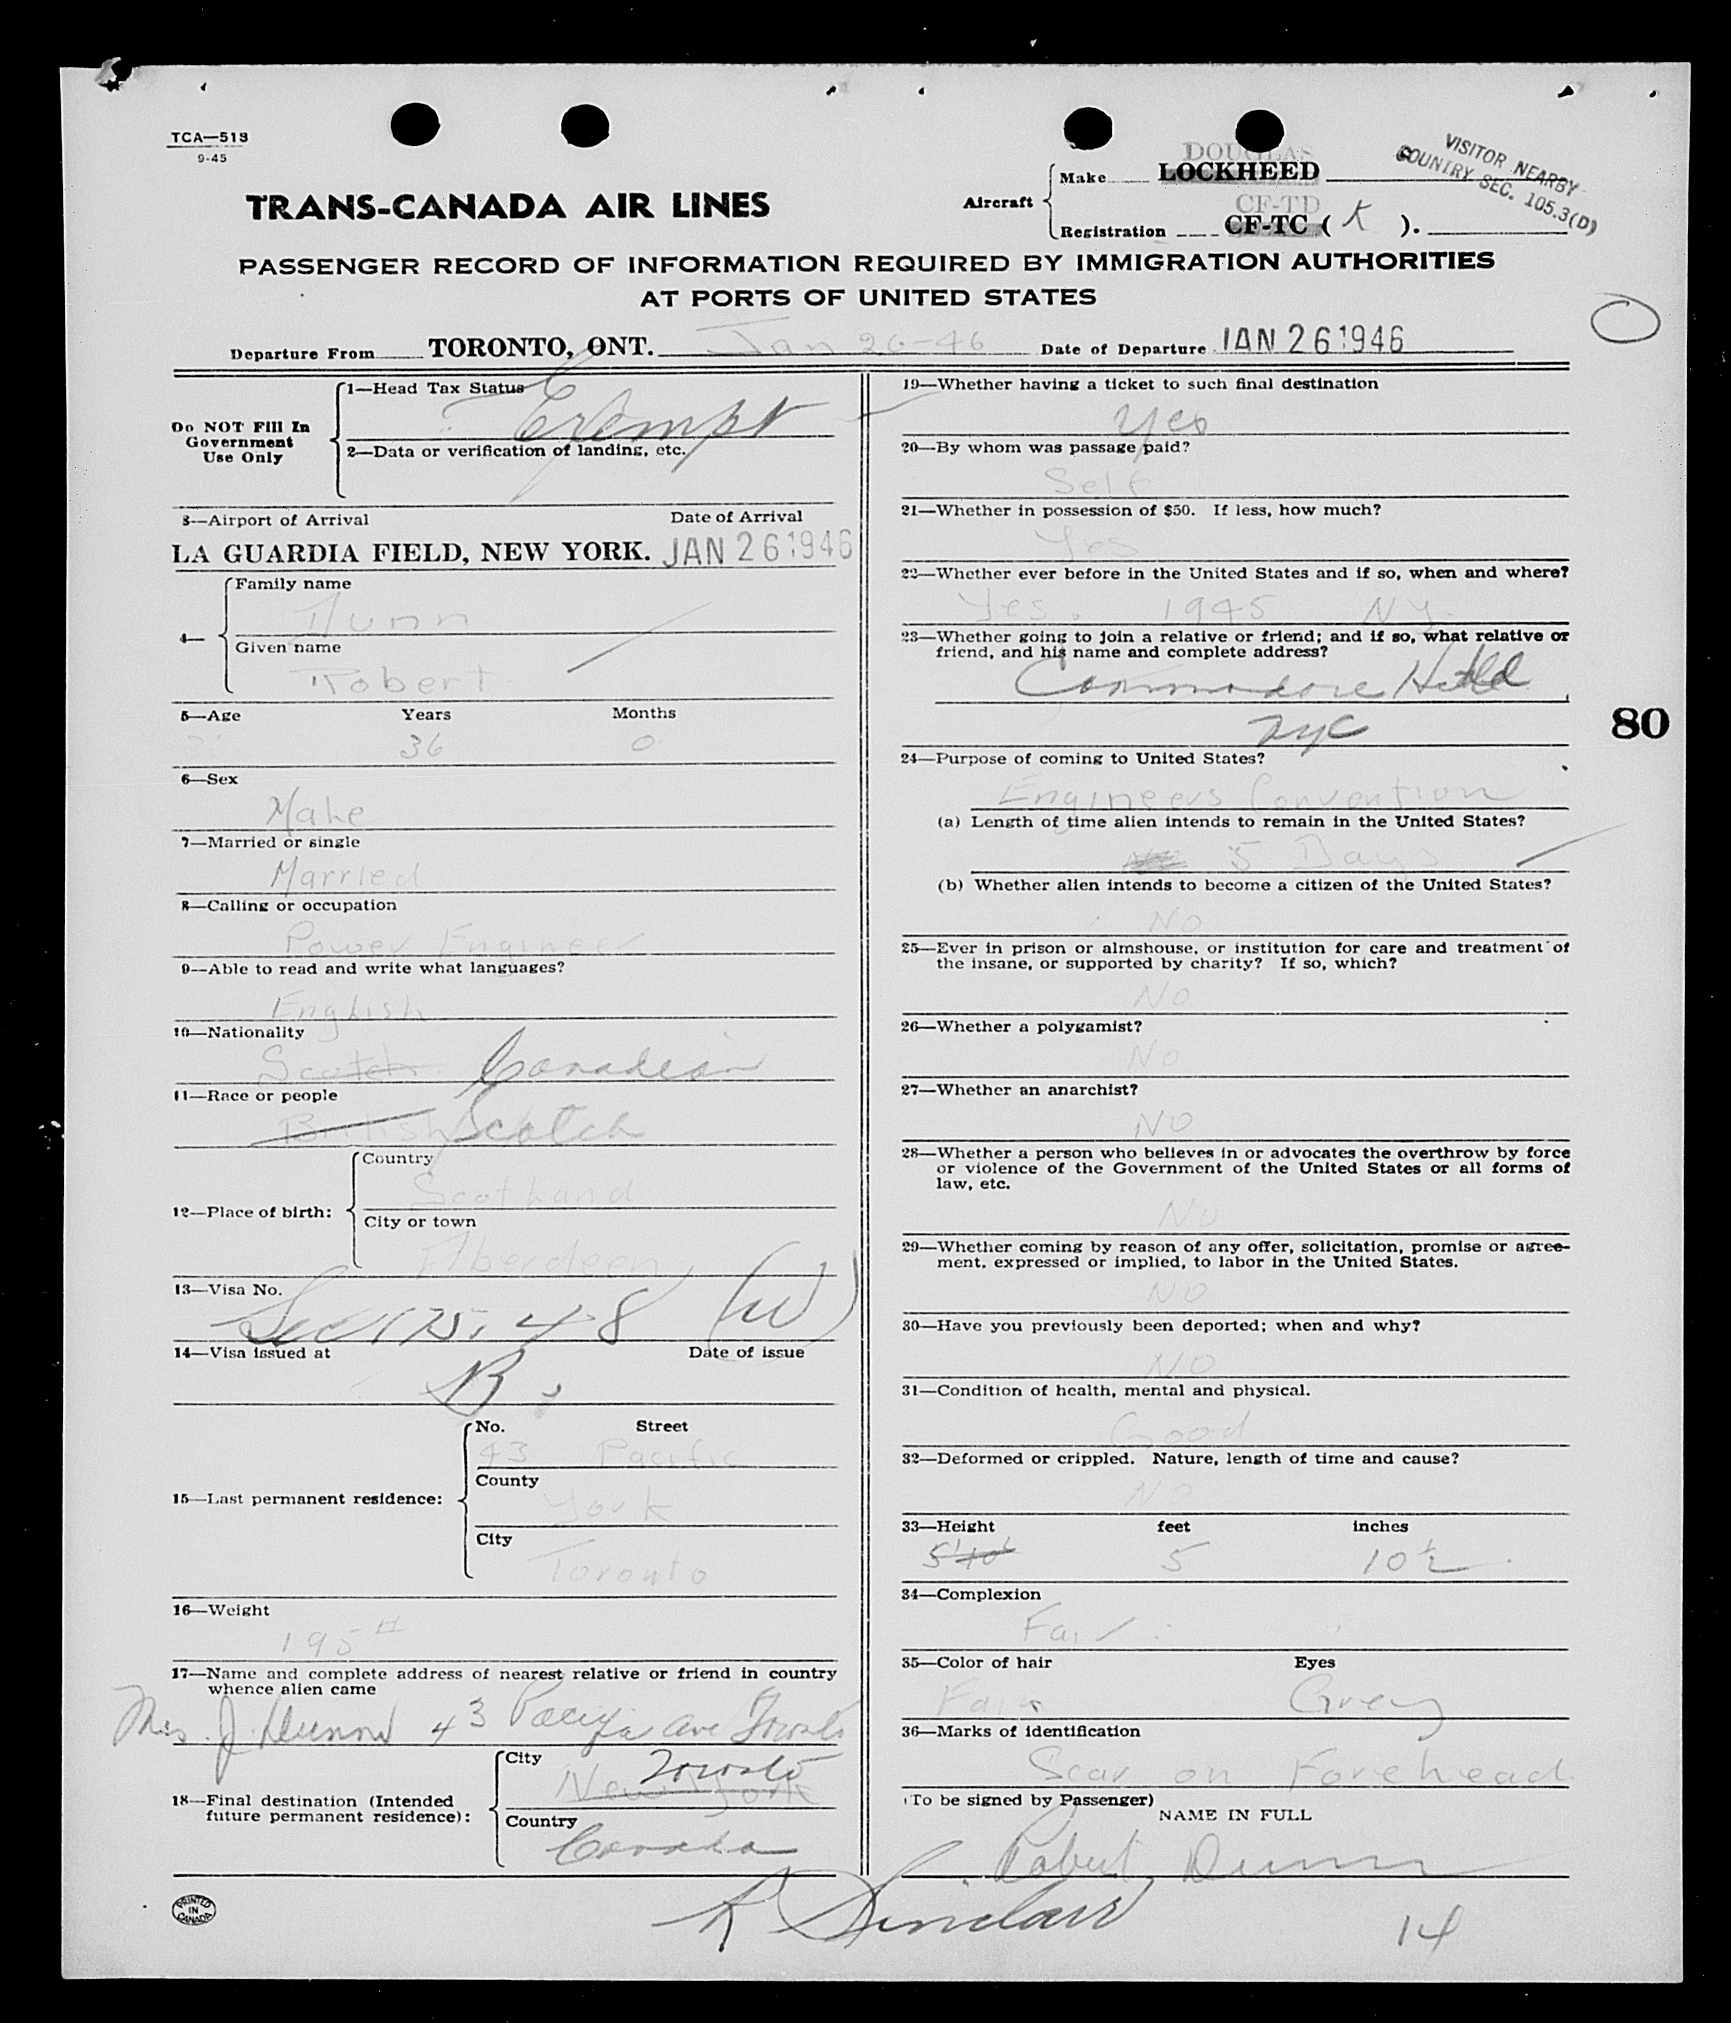 TCA—518
9-45
TRANS-CANADA AIR LINES
Aircraft
Make
DOUGLAS
LOCKHEED
Registration
CF-TD
CF-TC ( K ).
VISITOR NEARBY
COUNTRY SEC. 105.3(D)
PASSENGER RECORD OF INFORMATION REQUIRED BY IMMIGRATION AUTHORITIES
AT PORTS OF UNITED STATES
Departure From TORONTO, ONT. Jan 26-46 Date of Departure JAN 26 1946
Do NOT Fill In
Government
Use Only
1—Head Tax Status
Exempt
2—Data or verification of landing, etc.
3—Airport of Arrival Date of Arrival
LA GUARDIA FIELD, NEW YORK. JAN 26 1946
4—
Family name
Dunn
Given name
Robert
5—Age Years Months
36 0
6—Sex
Male
7—Married or single
Married
8—Calling or occupation
Power Engineer
9—Able to read and write what languages?
English
10—Nationality
Scotch Canadian
11—Race or people
British Scotch
12—Place of birth:
Country
Scotland
City or town
Aberdeen
13—Visa No.
Sec 175.48 (W)
14—Visa issued at Date of issue
B
15—Last permanent residence:
No. Street
43 Pacific
County
York
City
Toronto
16—Weight
195 #
17—Name and complete address of nearest relative or friend in country
whence alien came
Mrs. J. Dunn 43 Pacific Ave Toronto
18—Final destination (Intended
future permanent residence):
City
Toronto
New York
Country
Canada
PRINTED
IN
CANADA
19—Whether having a ticket to such final destination
Yes
20—By whom was passage paid?
Self
21—Whether in possession of $50. If less, how much?
Yes
22—Whether ever before in the United States and if so, when and where?
Yes. 1945 NY.
23—Whether going to join a relative or friend; and if so, what relative or
friend, and his name and complete address?
Commodore Hotel
NYC
80
24—Purpose of coming to United States?
Engineers Convention
(a) Length of time alien intends to remain in the United States?
5 Days
(b) Whether alien intends to become a citizen of the United States?
No
25—Ever in prison or almshouse, or institution for care and treatment of
the insane, or supported by charity? If so, which?
No
26—Whether a polygamist?
No
27—Whether an anarchist?
No
28—Whether a person who believes in or advocates the overthrow by force
or violence of the Government of the United States or all forms of
law, etc.
No
29—Whether coming by reason of any offer, solicitation, promise or agree-
ment, expressed or implied, to labor in the United States.
No
30—Have you previously been deported; when and why?
No
31—Condition of health, mental and physical.
Good
32—Deformed or crippled. Nature, length of time and cause?
No
33—Height feet inches
5'10" 5 10½
34—Complexion
Fair
35—Color of hair Eyes
Fair Grey
36—Marks of identification
Scar on Forehead
(To be signed by Passenger)
NAME IN FULL
Robert Dunn
R Sinclair
14